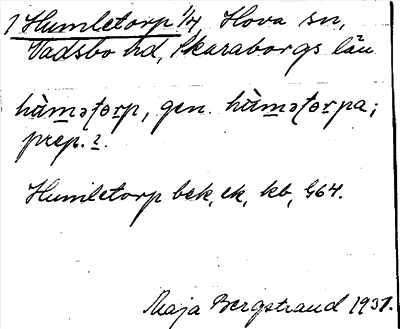 1 Humletorp 1/4 Hova sn,
Vadsbo hd, Skaraborgs län
hùmətorp, gen. hùmətorpa;
prep. i.
Humletorp bek, ek, kb, G64.
Maja Bergstrand 1931.